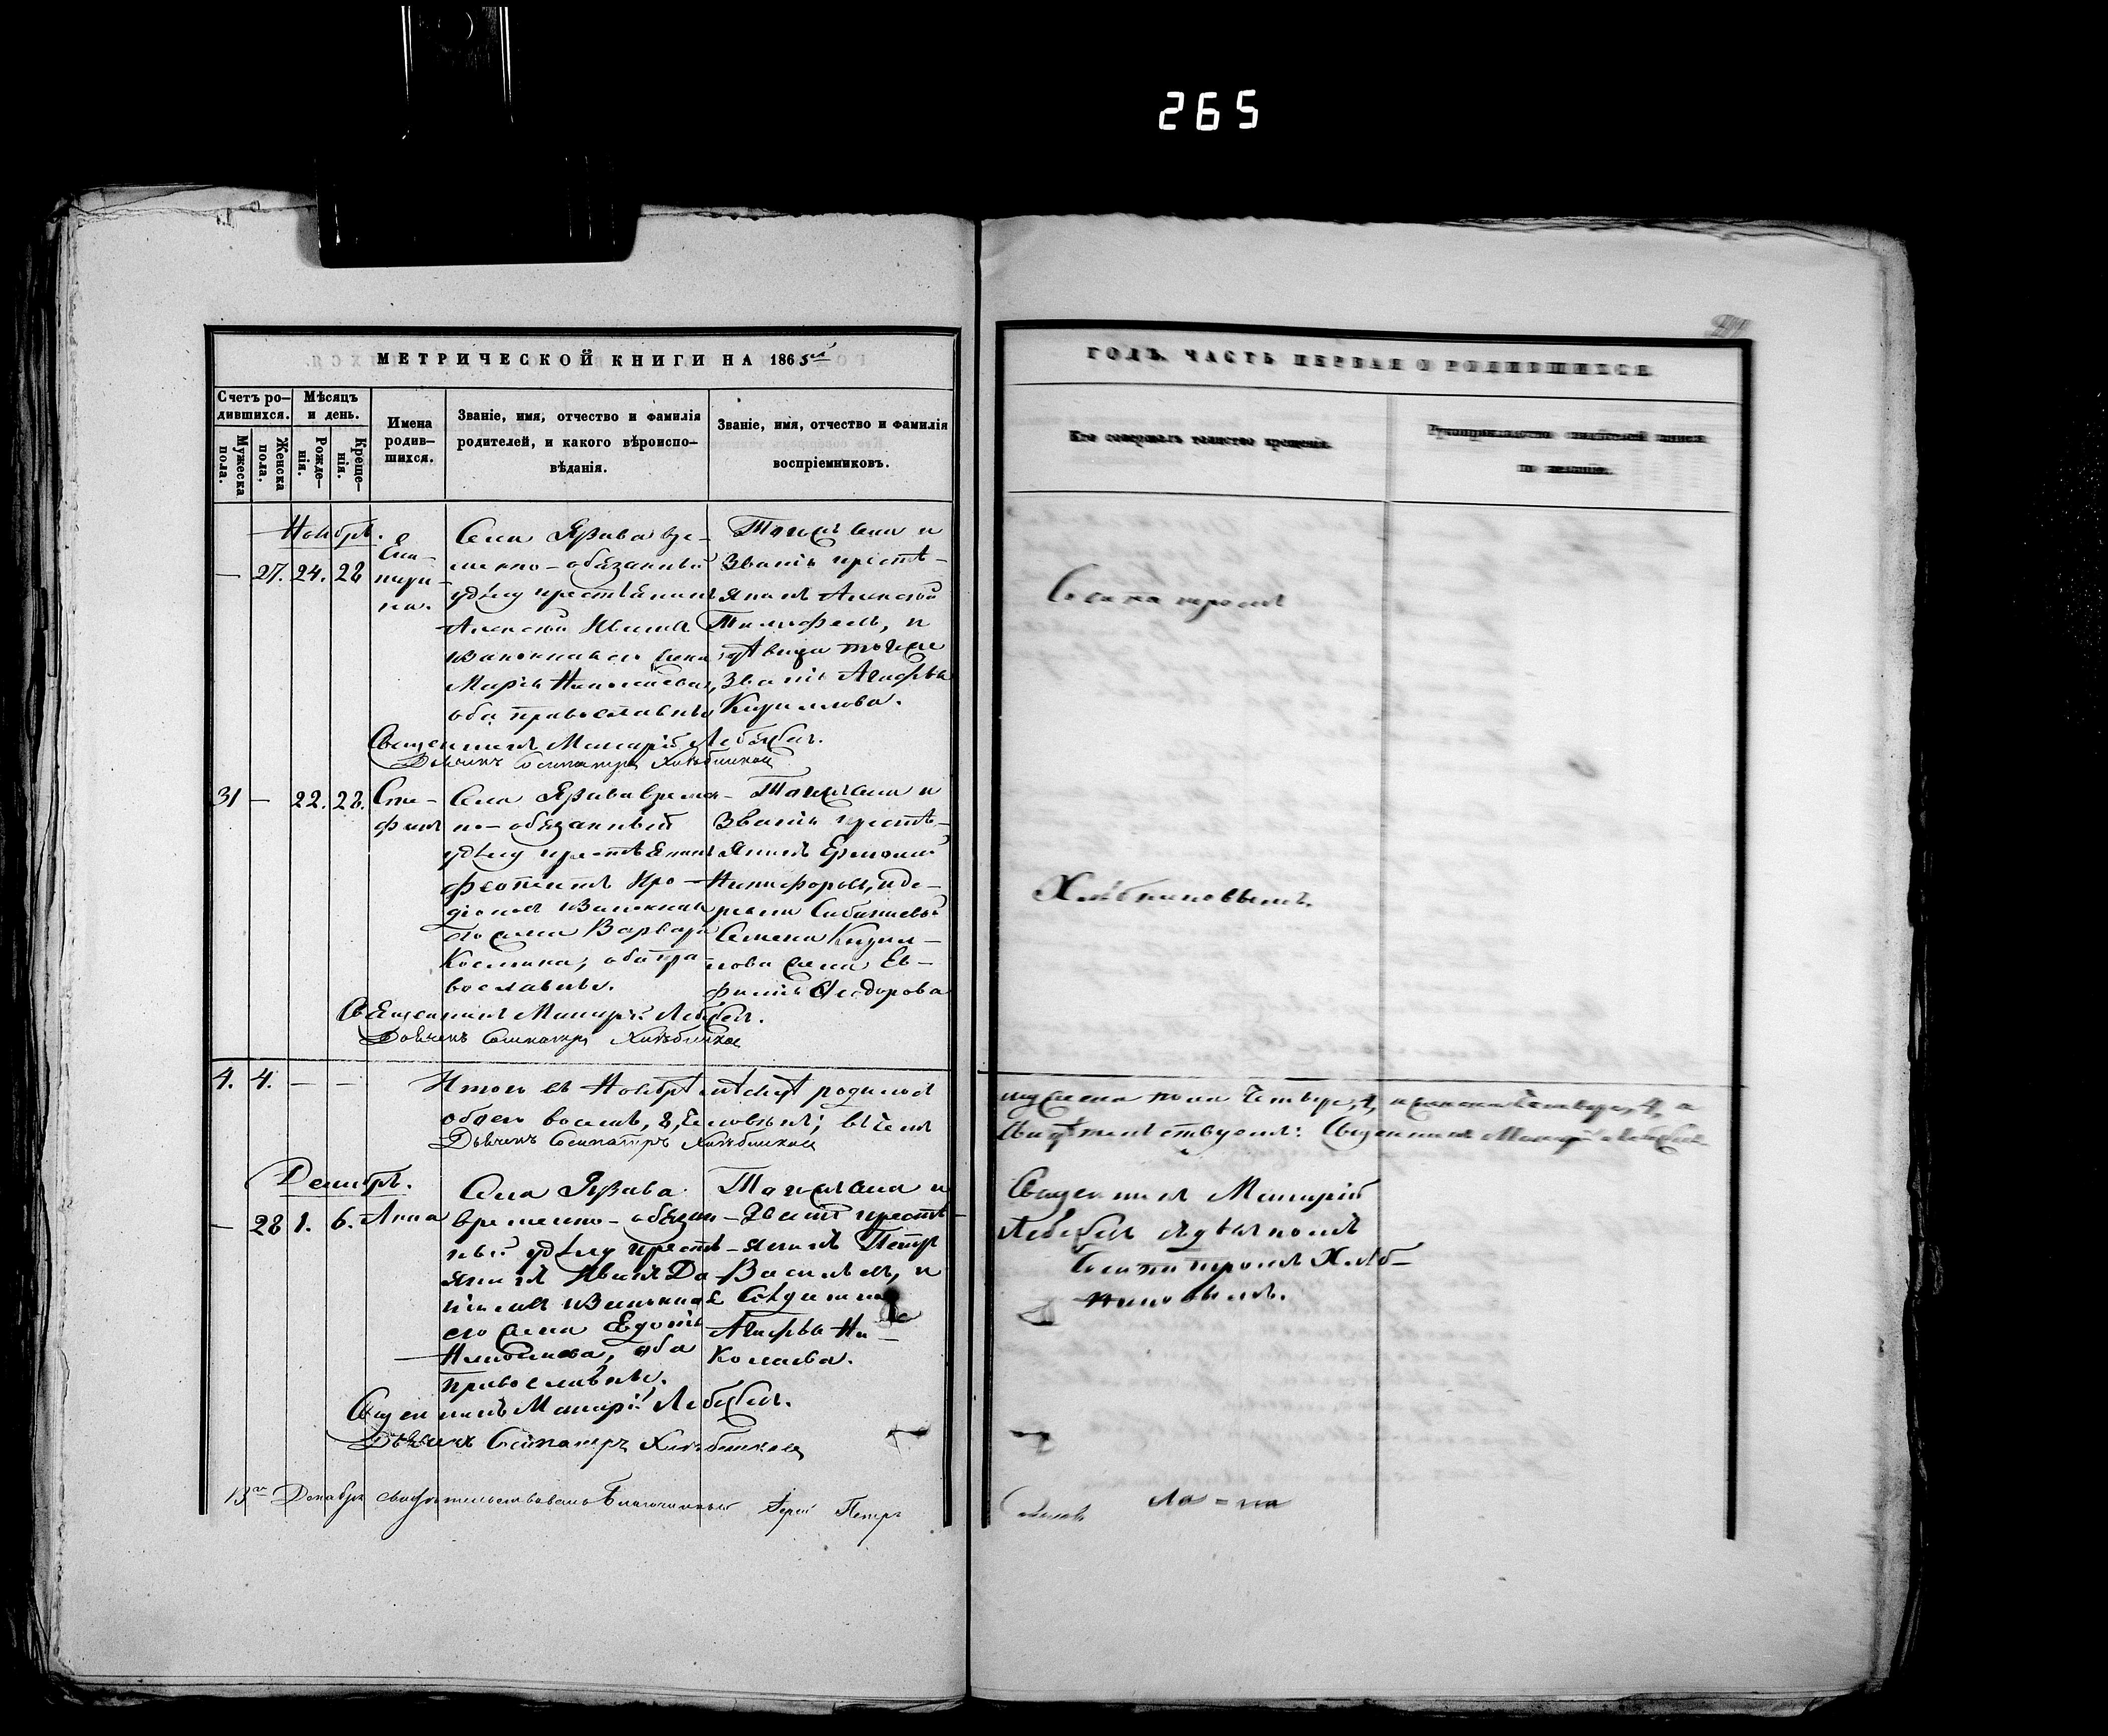 265
МЕТРИЧЕСКОЙ КНИГИ НА 1865й
Счетъ ро-
дившихся.
Мѣсяцъ
и день.
Мужеска
пола.
Женска
пола.
Рожде-
нія.
Креще-
нія.
Имена
родив-
шихся.
Званіе, имя, отчество и фамилія
родителей, и какого вѣроиспо-
вѣданія.
Званіе, имя, отчество и фамилія
воспріемниковъ.
Ноябрь.
— 27. 24. 28
Ека-
тери-
на.
Села Языва вре-
менно-обязанный
удѣлу крестьянинъ
Алексѣй Ивановъ
и законная его жена
Марія Николаева,
оба православные
Того же села и
званія кресть-
янинъ Алексѣй
Тимофеевъ, и
дѣвица того же
званія Агафья
Кириллова.
Священникъ Макарій Лебедевъ.
Дьячекъ Сосипатръ Хлѣбниковъ
31 — 22. 28.
Сте-
фанъ
Села Языва времен-
но-обязанный
удѣлу крестьянинъ
Феоктистъ Иро-
діоновъ и законная
его жена Варвара
Космина, оба пра-
вославные.
Того же села и
званія кресть-
янинъ Ермолай
Никифоровъ, и де-
ревни
Семена Кирил-
лова жена Ев-
фимія Феодорова
Священникъ Макарій Лебедевъ.
Дьячекъ Сосипатръ Хлѣбниковъ
4. 4. — —
Итого въ Ноябрѣ мѣсяцѣ родилось
обоего восемь, 8, человѣкъ; въ чемъ
Дьячекъ Сосипатръ Хлѣбниковъ
Декабрь.
— 28 1. 6. Анна
Села Языва
временно-обязан-
ный удѣлу кресть-
янинъ Иванъ Да-
ниловъ и законная
его жена Евдокія
оба
православные.
Того же села и
званія кресть-
янинъ Петръ
Васильевъ, и
Агафья Ни-
колаева.
Священникъ Макарій Лебедевъ.
Дьячекъ Сосипатръ Хлѣбниковъ
13го Декабря свидѣтельствовалъ Благочинный Іерей Петръ
ГОДЪ. ЧАСТЬ ПЕРВАЯ О РОДИВШИХСЯ
Кто совершалъ таинство крещенія.
Рукоприкладство свидѣтелей записи
по желанію.
Сосипатромъ
Хлѣбниковымъ.
мужеска пола четыре, 4, и женска четыре, 4, и
свидѣтельствуемъ: Священникъ Макарій Лебедевъ
Священникъ Макарій
Лебедевъ съ дьячкомъ
Сосипатромъ Хлѣб-
никовымъ.